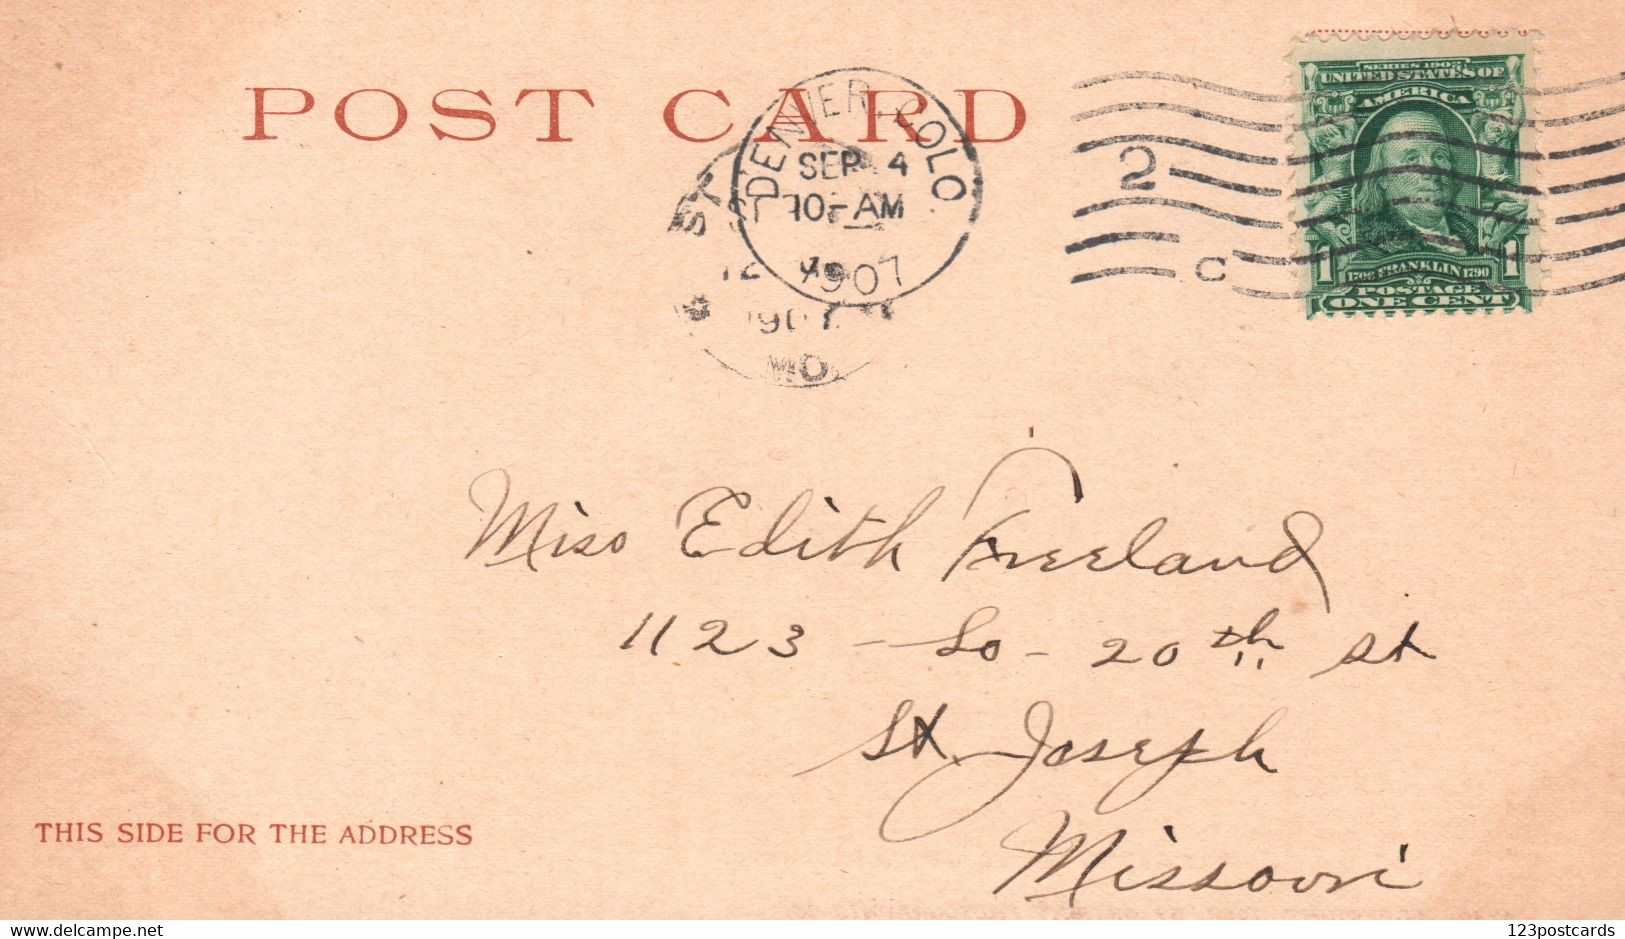 POST CARD
DENVER, COLO
SEP 4
10-AM
1907
ST
MO.
2
C
SERIES 1902
UNITED STATES OF
AMERICA
1 1706 FRANKLIN 1790 1
POSTAGE
ONE CENT
Miss Edith Freeland
1123 - So - 20th st
St Joseph
Missouri
THIS SIDE FOR THE ADDRESS
123postcards